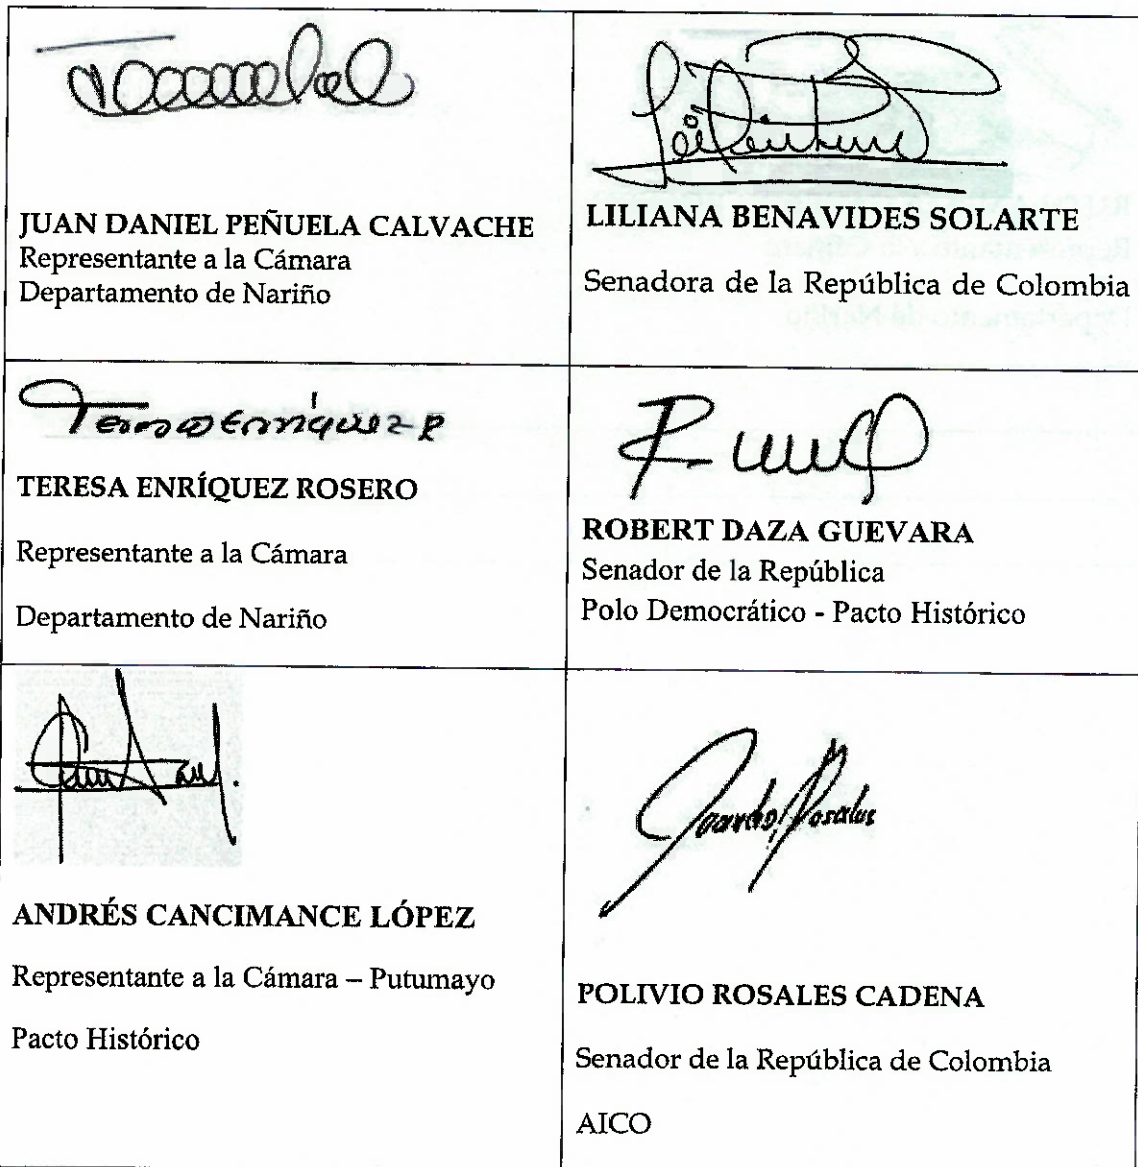 JUAN DANIEL PEÑUELA CALVACHE
Representante a la Cámara
Departamento de Nariño
LILIANA BENAVIDES SOLARTE
Senadora de la República de Colombia
Teresa Enríquez R
TERESA ENRÍQUEZ ROSERO
Representante a la Cámara
Departamento de Nariño
ROBERT DAZA GUEVARA
Senador de la República
Polo Democrático - Pacto Histórico
ANDRÉS CANCIMANCE LÓPEZ
Representante a la Cámara – Putumayo
Pacto Histórico
POLIVIO ROSALES CADENA
Senador de la República de Colombia
AICO